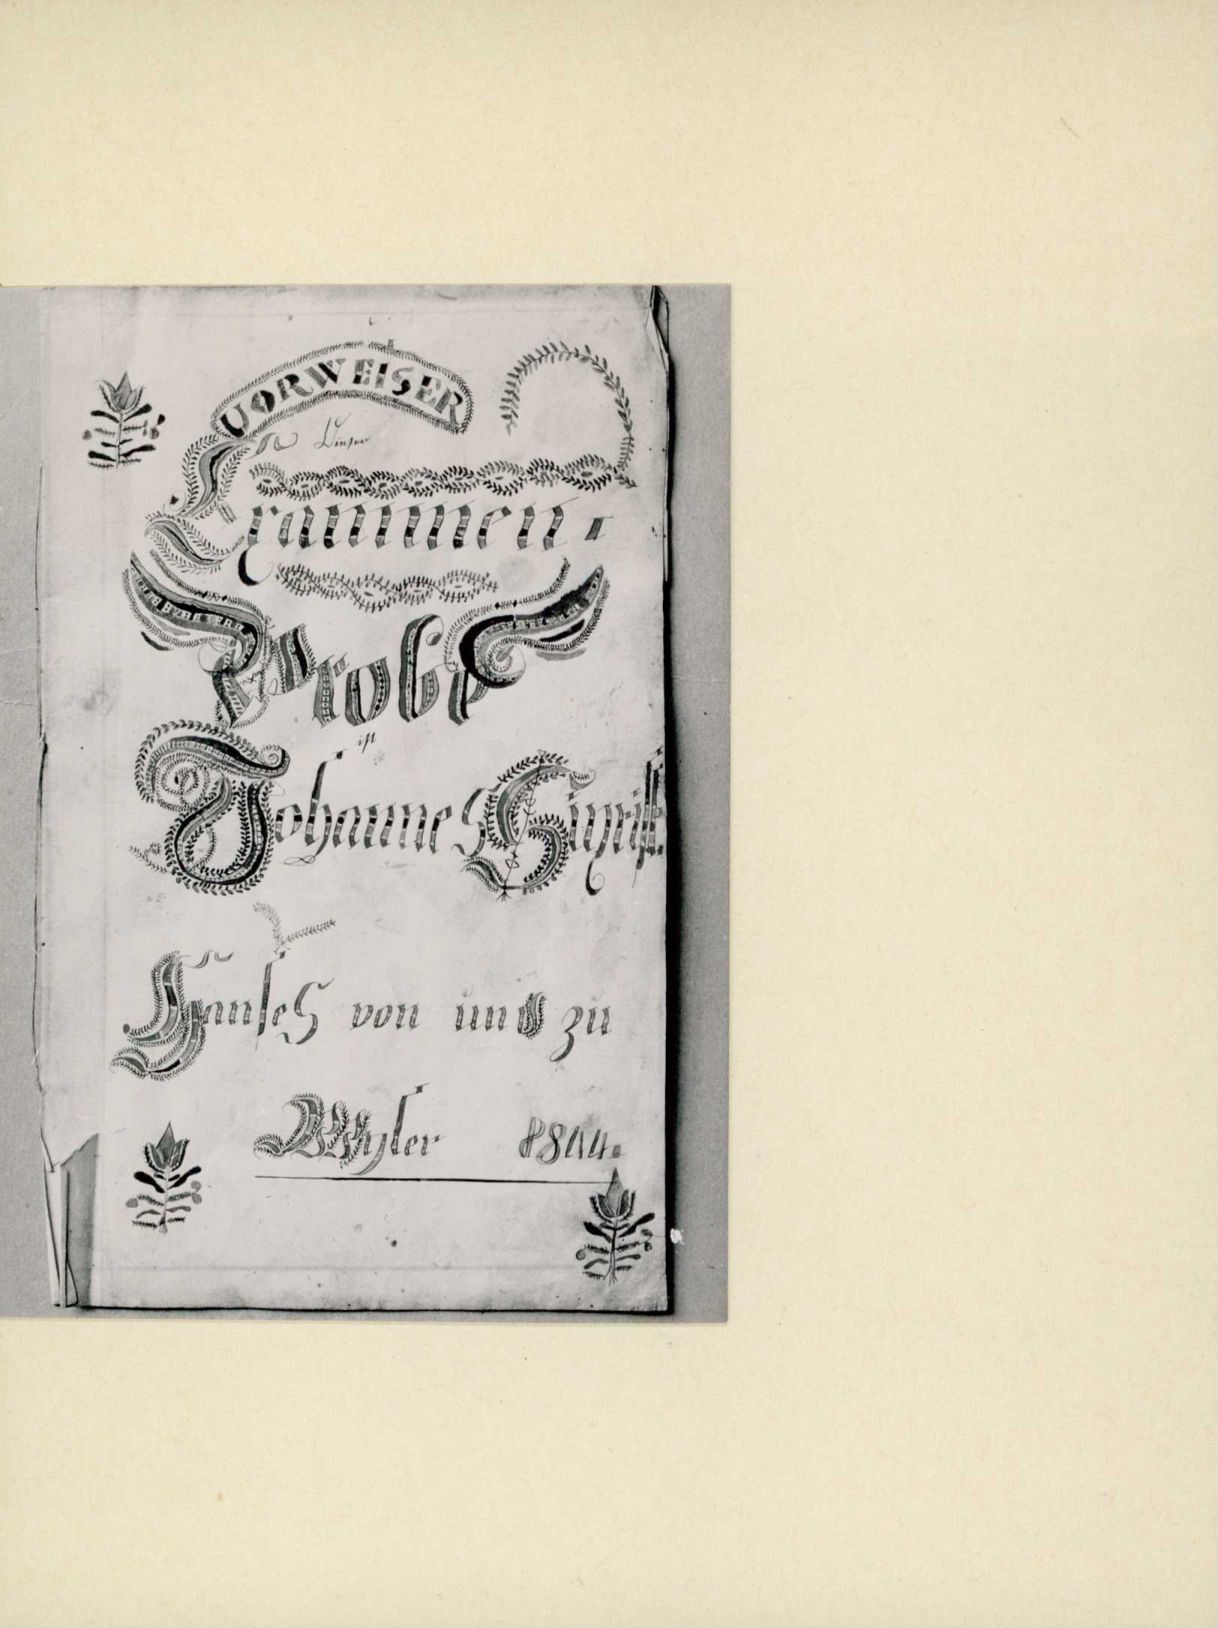 VORWEISER
Dieser
Exammen-
Probe
ist
Johannes Gyrist.
Hanses von und zu
Wyler 1844.